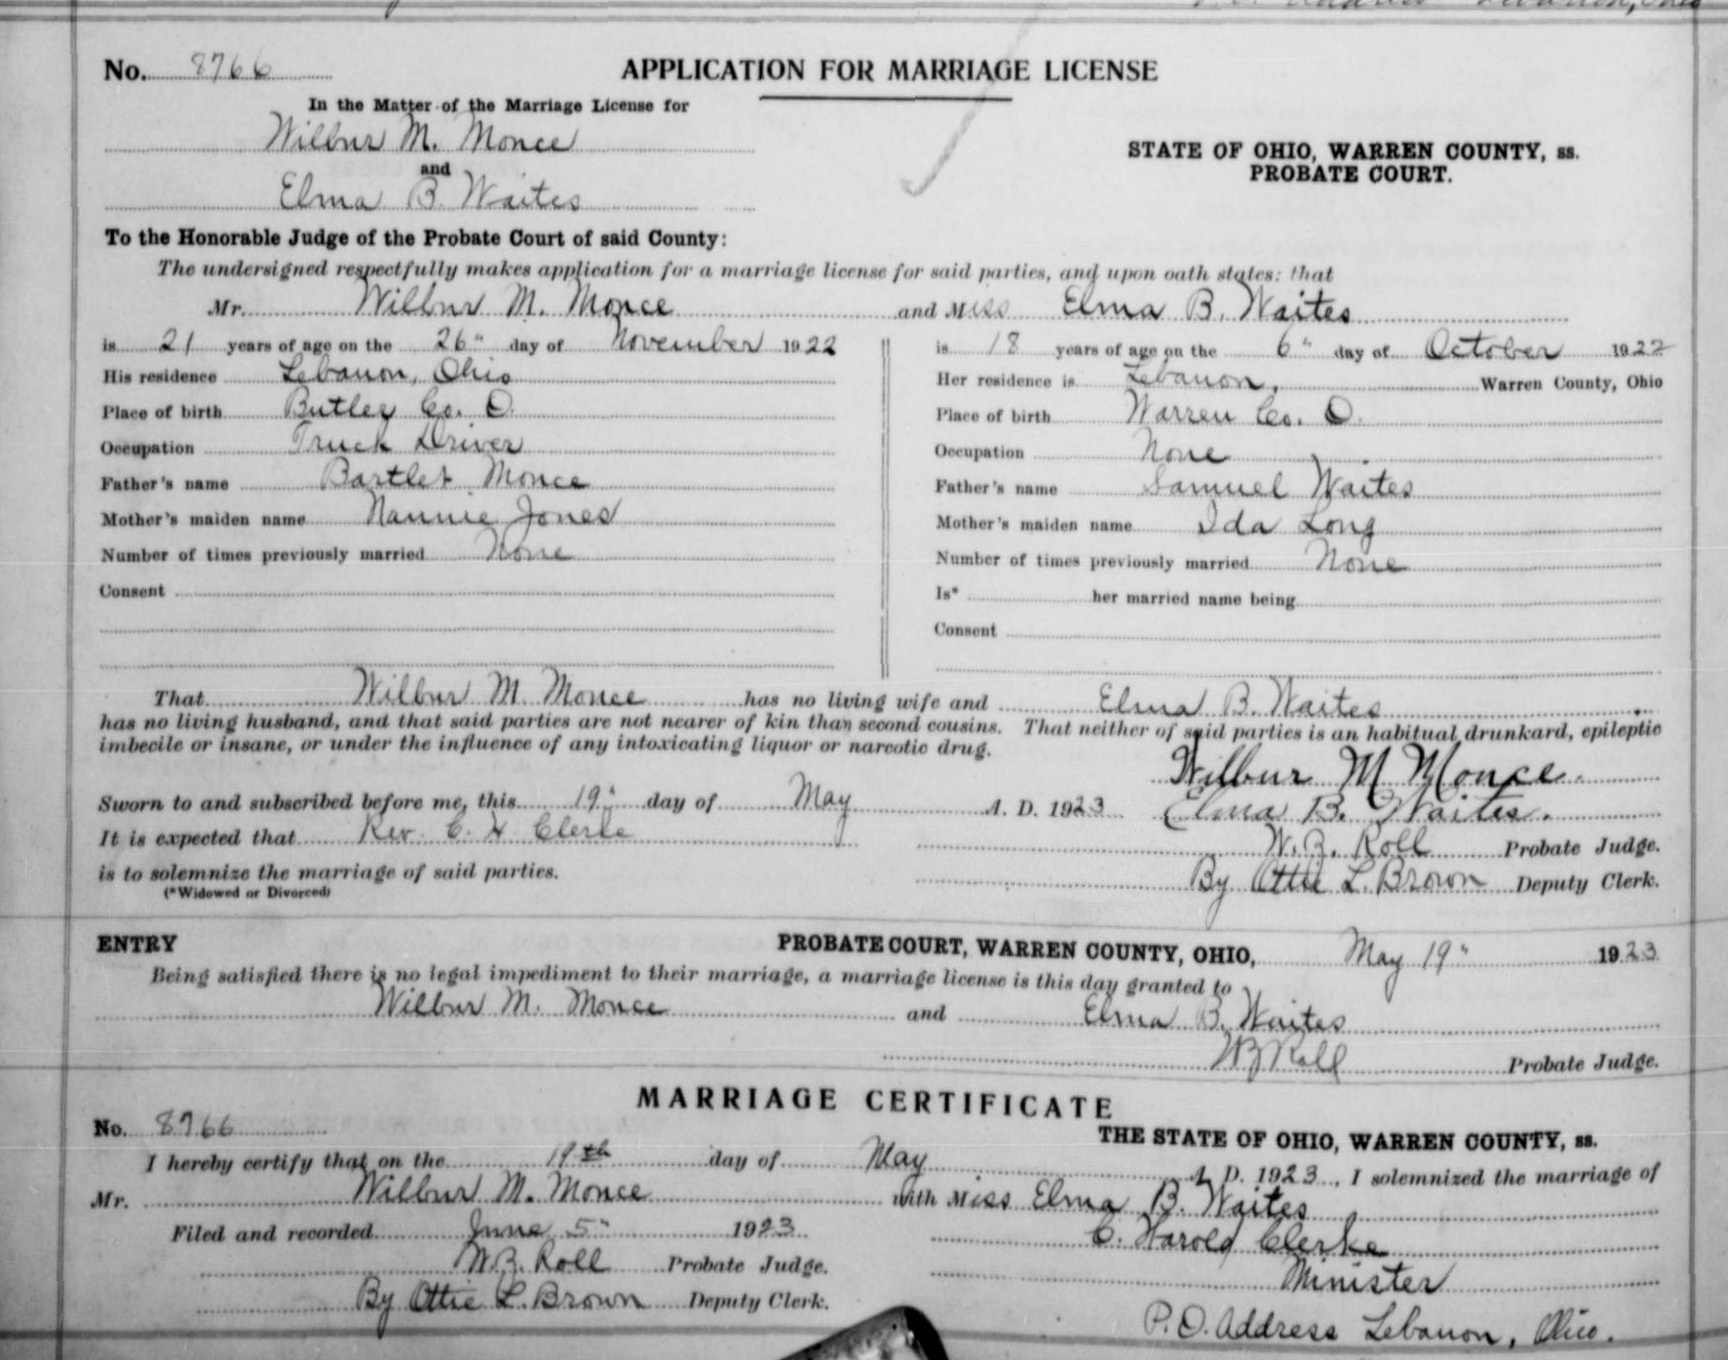 No. 8766 APPLICATION FOR MARRIAGE LICENSE
In the Matter of the Marriage License for
Wilbur M. Monce
and
Elma B. Waites
STATE OF OHIO, WARREN COUNTY, ss.
PROBATE COURT.
To the Honorable Judge of the Probate Court of said County:
The undersigned respectfully makes application for a marriage license for said parties, and upon oath states: that
Mr. Wilbur M. Monce and Miss Elma B. Waites
is 21 years of age on the 26" day of November 1922
His residence Lebanon, Ohio
Place of birth Butler Co. O.
Occupation Truck Driver
Father's name Bartlet Monce
Mother's maiden name Nannie Jones
Number of times previously married None
Consent
is 18 years of age on the 6" day of October 1922
Her residence is Lebanon, Warren County, Ohio
Place of birth Warren Co. O.
Occupation None
Father's name Samuel Waites
Mother's maiden name Ida Long
Number of times previously married None
Is* her married name being
Consent
That Wilbur M. Monce has no living wife and Elma B. Waites
has no living husband, and that said parties are not nearer of kin than second cousins. That neither of said parties is an habitual drunkard, epileptic
imbecile or insane, or under the influence of any intoxicating liquor or narcotic drug.
Wilbur M Monce.
Sworn to and subscribed before me, this 19" day of May A. D. 1923 Elma B. Waites.
It is expected that Rev. C. H Clerke
W. Z. Roll Probate Judge.
is to solemnize the marriage of said parties.
By Ottie L. Brown Deputy Clerk.
(*Widowed or Divorced)
ENTRY PROBATE COURT, WARREN COUNTY, OHIO, May 19" 1923
Being satisfied there is no legal impediment to their marriage, a marriage license is this day granted to
Wilbur M. Monce and Elma B. Waites
W Z Roll Probate Judge.
MARRIAGE CERTIFICATE
No. 8766 THE STATE OF OHIO, WARREN COUNTY, ss.
I hereby certify that on the 19th day of May A. D. 1923, I solemnized the marriage of
Mr. Wilbur M. Monce with Miss Elma B. Waites
Filed and recorded June 5" 1923
C. Harold Clerke
W. Z. Roll Probate Judge.
Minister
By Ottie L. Brown Deputy Clerk.
P. O. Address Lebanon, Ohio.